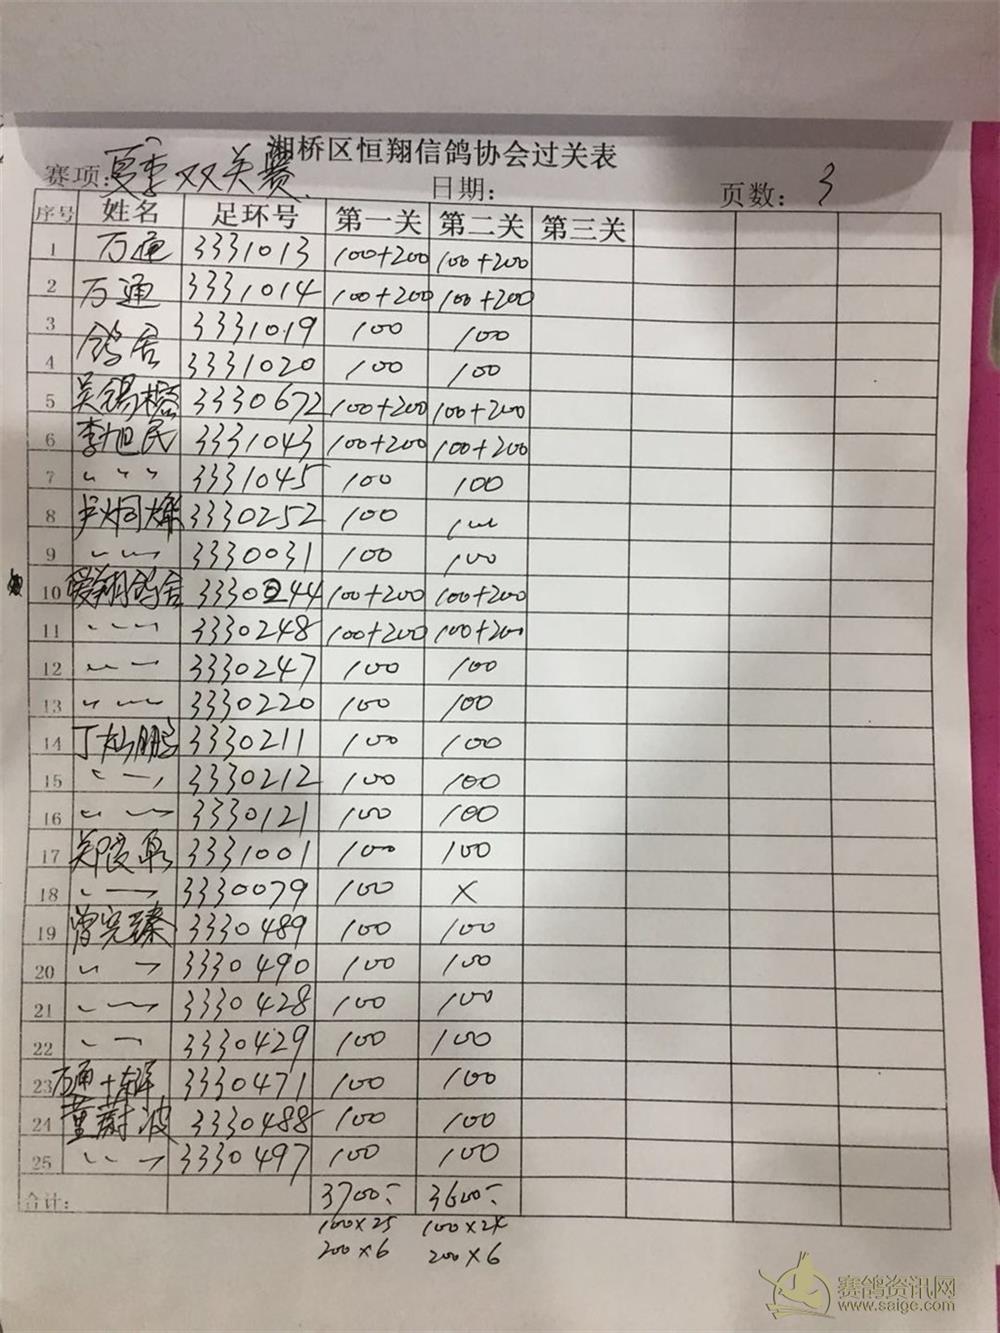 湘桥区恒翔信鸽协会过关表
赛项: 夏季双关赛 日期: 页数: 3
序号 姓名 足环号 第一关 第二关 第三关
1 万通 3331013 100+200 100+200
2 万通 3331014 100+200 100+200
3 鸽舍 3331019 100 100
4 3331020 100 100
5 吴锡榕 3330672 100+200 100+200
6 李旭民 3331043 100+200 100+200
7 〃 〃 〃 3331045 100 100
8 3330252 100 100
9 〃 〃 3330031 100 100
10 爱翔鸽舍 3330244 100+200 100+200
11 〃 〃 3330248 100+200 100+200
12 〃 〃 3330247 100 100
13 〃 〃 3330220 100 100
14 丁灿鹏 3330211 100 100
15 〃 〃 3330212 100 100
16 〃 〃 3330121 100 100
17 3331001 100 100
18 〃 〃 3330079 100 ×
19 曾完臻 3330489 100 100
20 〃 〃 3330490 100 100
21 〃 〃 3330428 100 100
22 〃 〃 3330429 100 100
23 万通+ 3330471 100 100
24 董蔚波 3330488 100 100
25 〃 〃 3330497 100 100
合计: 3700 3600
100×25 100×24
200×6 200×6
赛鸽资讯网
www.saige.com